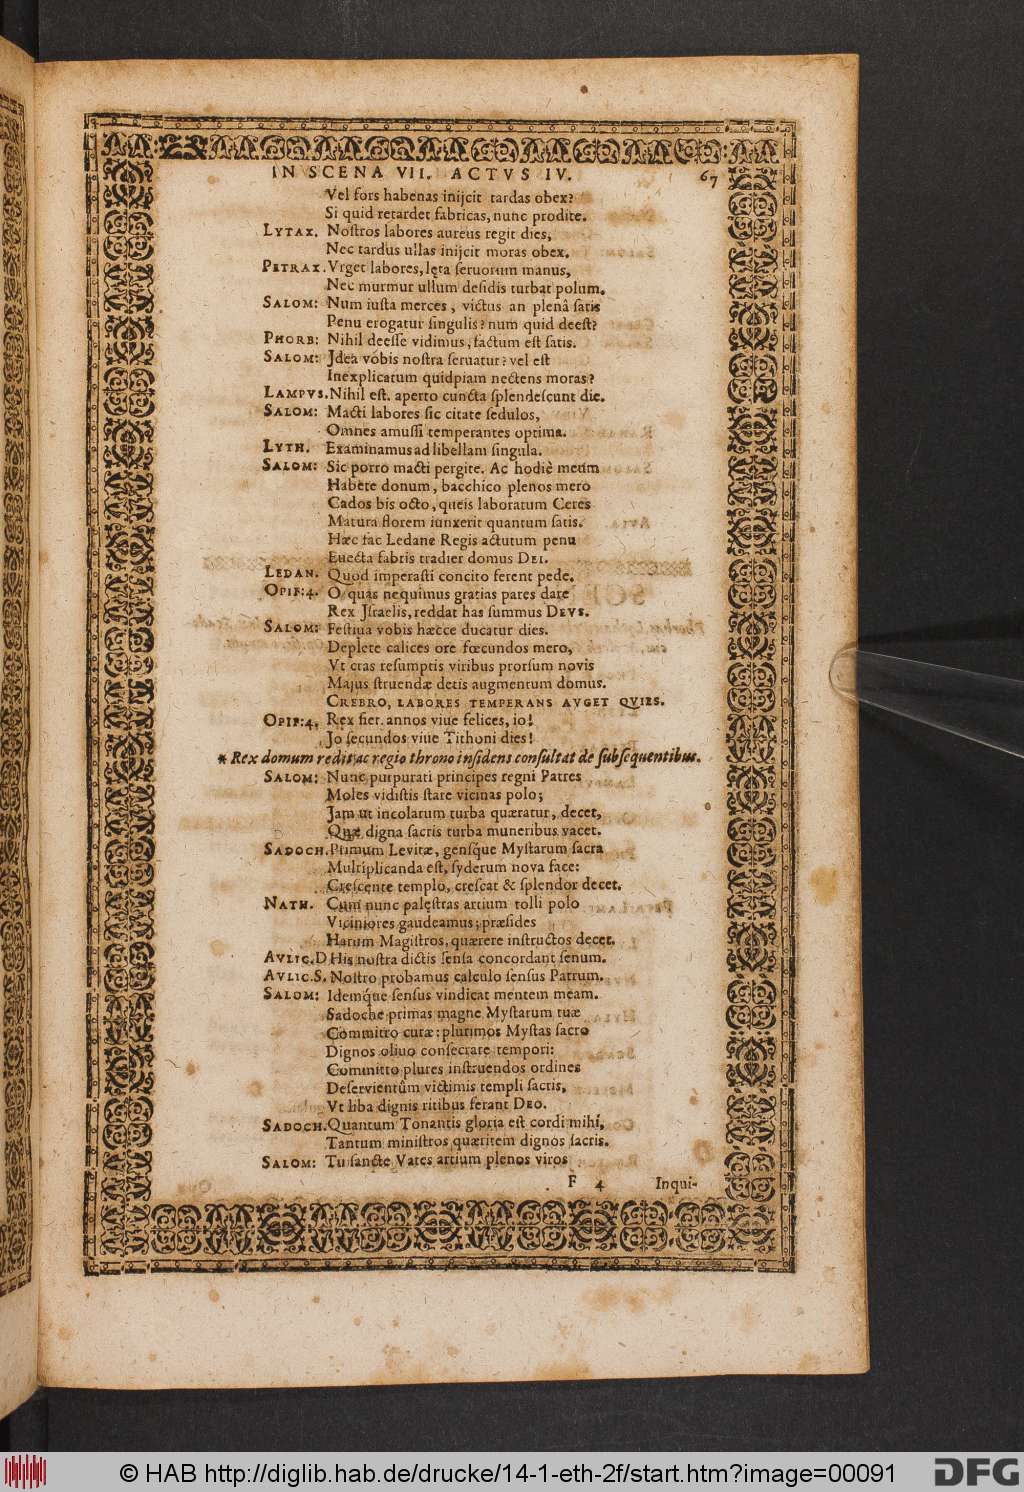 IN SCENA VII. ACTVS IV. 67
Vel fors habenas inijcit tardas obex?
Si quid retardet fabricas, nunc prodite.
LYTAX. Nostros labores aureus regit dies,
Nec tardus ullas inijcit moras obex.
PETRAX. Vrget labores, lęta seruorum manus,
Nec murmur ullum desidis turbat polum.
SALOM: Num iusta merces, victus an plenâ satis
Penu erogatur singulis? num quid deest?
PHORB: Nihil deesse vidimus, factum est satis.
SALOM: Jdea vobis nostra seruatur? vel est
Inexplicatum quidpiam nectens moras?
LAMPVS. Nihil est. aperto cuncta splendescunt die.
SALOM: Macti labores sic citate sedulos,
Omnes amussi temperantes optima.
LYTH. Examinamus ad libellam singula.
SALOM: Sic porro macti pergite. Ac hodiè meum
Habete donum, bacchico plenos mero
Cados bis octo, queis laboratum Ceres
Matura florem iunxerit quantum satis.
Hæc fac Ledane Regis actutum penu
Euecta fabris tradier domus DEI.
LEDAN. Quod imperasti concito ferent pede.
OPIF:4. O quas nequimus gratias pares dare
Rex Jsraelis, reddat has summus DEVS.
SALOM: Festiua vobis hæcce ducatur dies.
Deplete calices ore fœcundos mero,
Vt cras resumptis viribus prorsum novis
Majus struendæ detis augmentum domus.
CREBRO, LABORES TEMPERANS AVGET QVIES.
OPIF:4. Rex fier. annos viue felices, io!
Jo secundos viue Tithoni dies!
* Rex domum redit, ac regio throno insidens consultat de subsequentibus.
SALOM: Nunc purpurati principes regni Patres
Moles vidistis stare vicinas polo;
Jam ut incolarum turba quæratur, decet,
Quæ digna sacris turba muneribus vacet.
SADOCH. Primum Levitæ, gensq́ue Mystarum sacra
Multiplicanda est, syderum nova face:
Crescente templo, crescat & splendor decet.
NATH. Cum nunc palęstras artium tolli polo
Viciniores gaudeamus; præsides
Harum Magistros, quærere instructos decet.
AVLIC.D. His nostra dictis sensa concordant senum.
AVLIC.S. Nostro probamus calculo sensus Patrum.
SALOM: Idemq́ue sensus vindicat mentem meam.
Sadoche primas magne Mystarum tuæ
Committo curæ: plurimos Mystas sacro
Dignos olivo consecrare tempori:
Committo plures instruendos ordines
Deservientûm victimis templi sacris,
Vt liba dignis ritibus ferant DEO.
SADOCH. Quantum Tonantis gloria est cordi mihi,
Tantum ministros quæritem dignos sacris.
SALOM: Tu sancte Vates artium plenos viros
F 4 Inqui-
© HAB http://diglib.hab.de/drucke/14-1-eth-2f/start.htm?image=00091
DFG